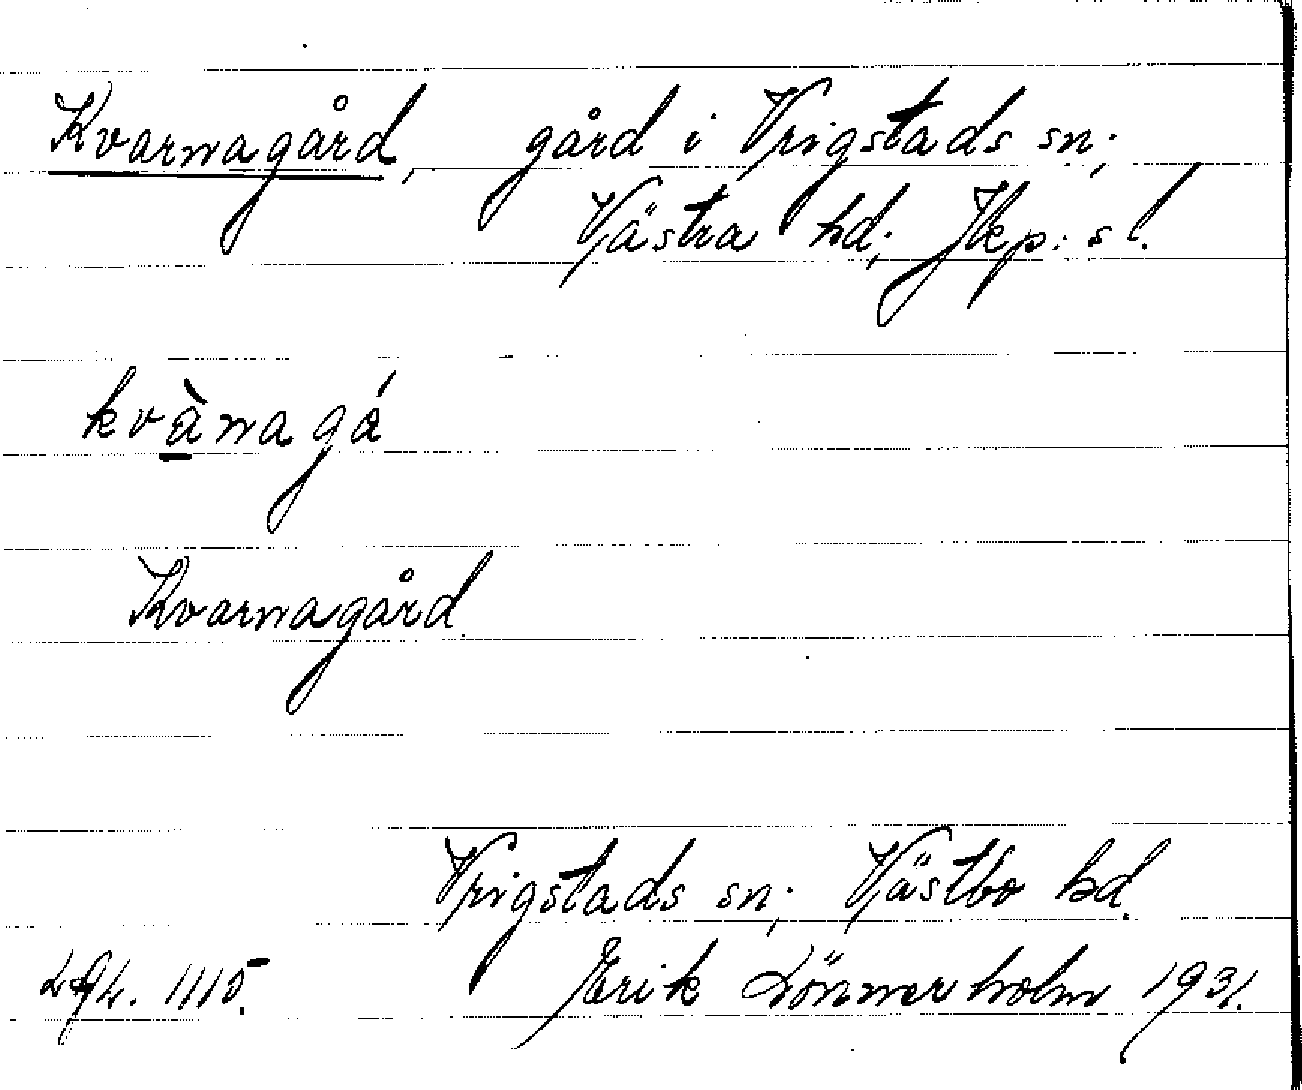 Kvarnagård, gård i Vrigstads sn;
Västra hd; Jkp:s l.
kvànagá
Kvarnagård
Vrigstads sn; Västbo hd.
1115. Erik Lönnerholm 1931.